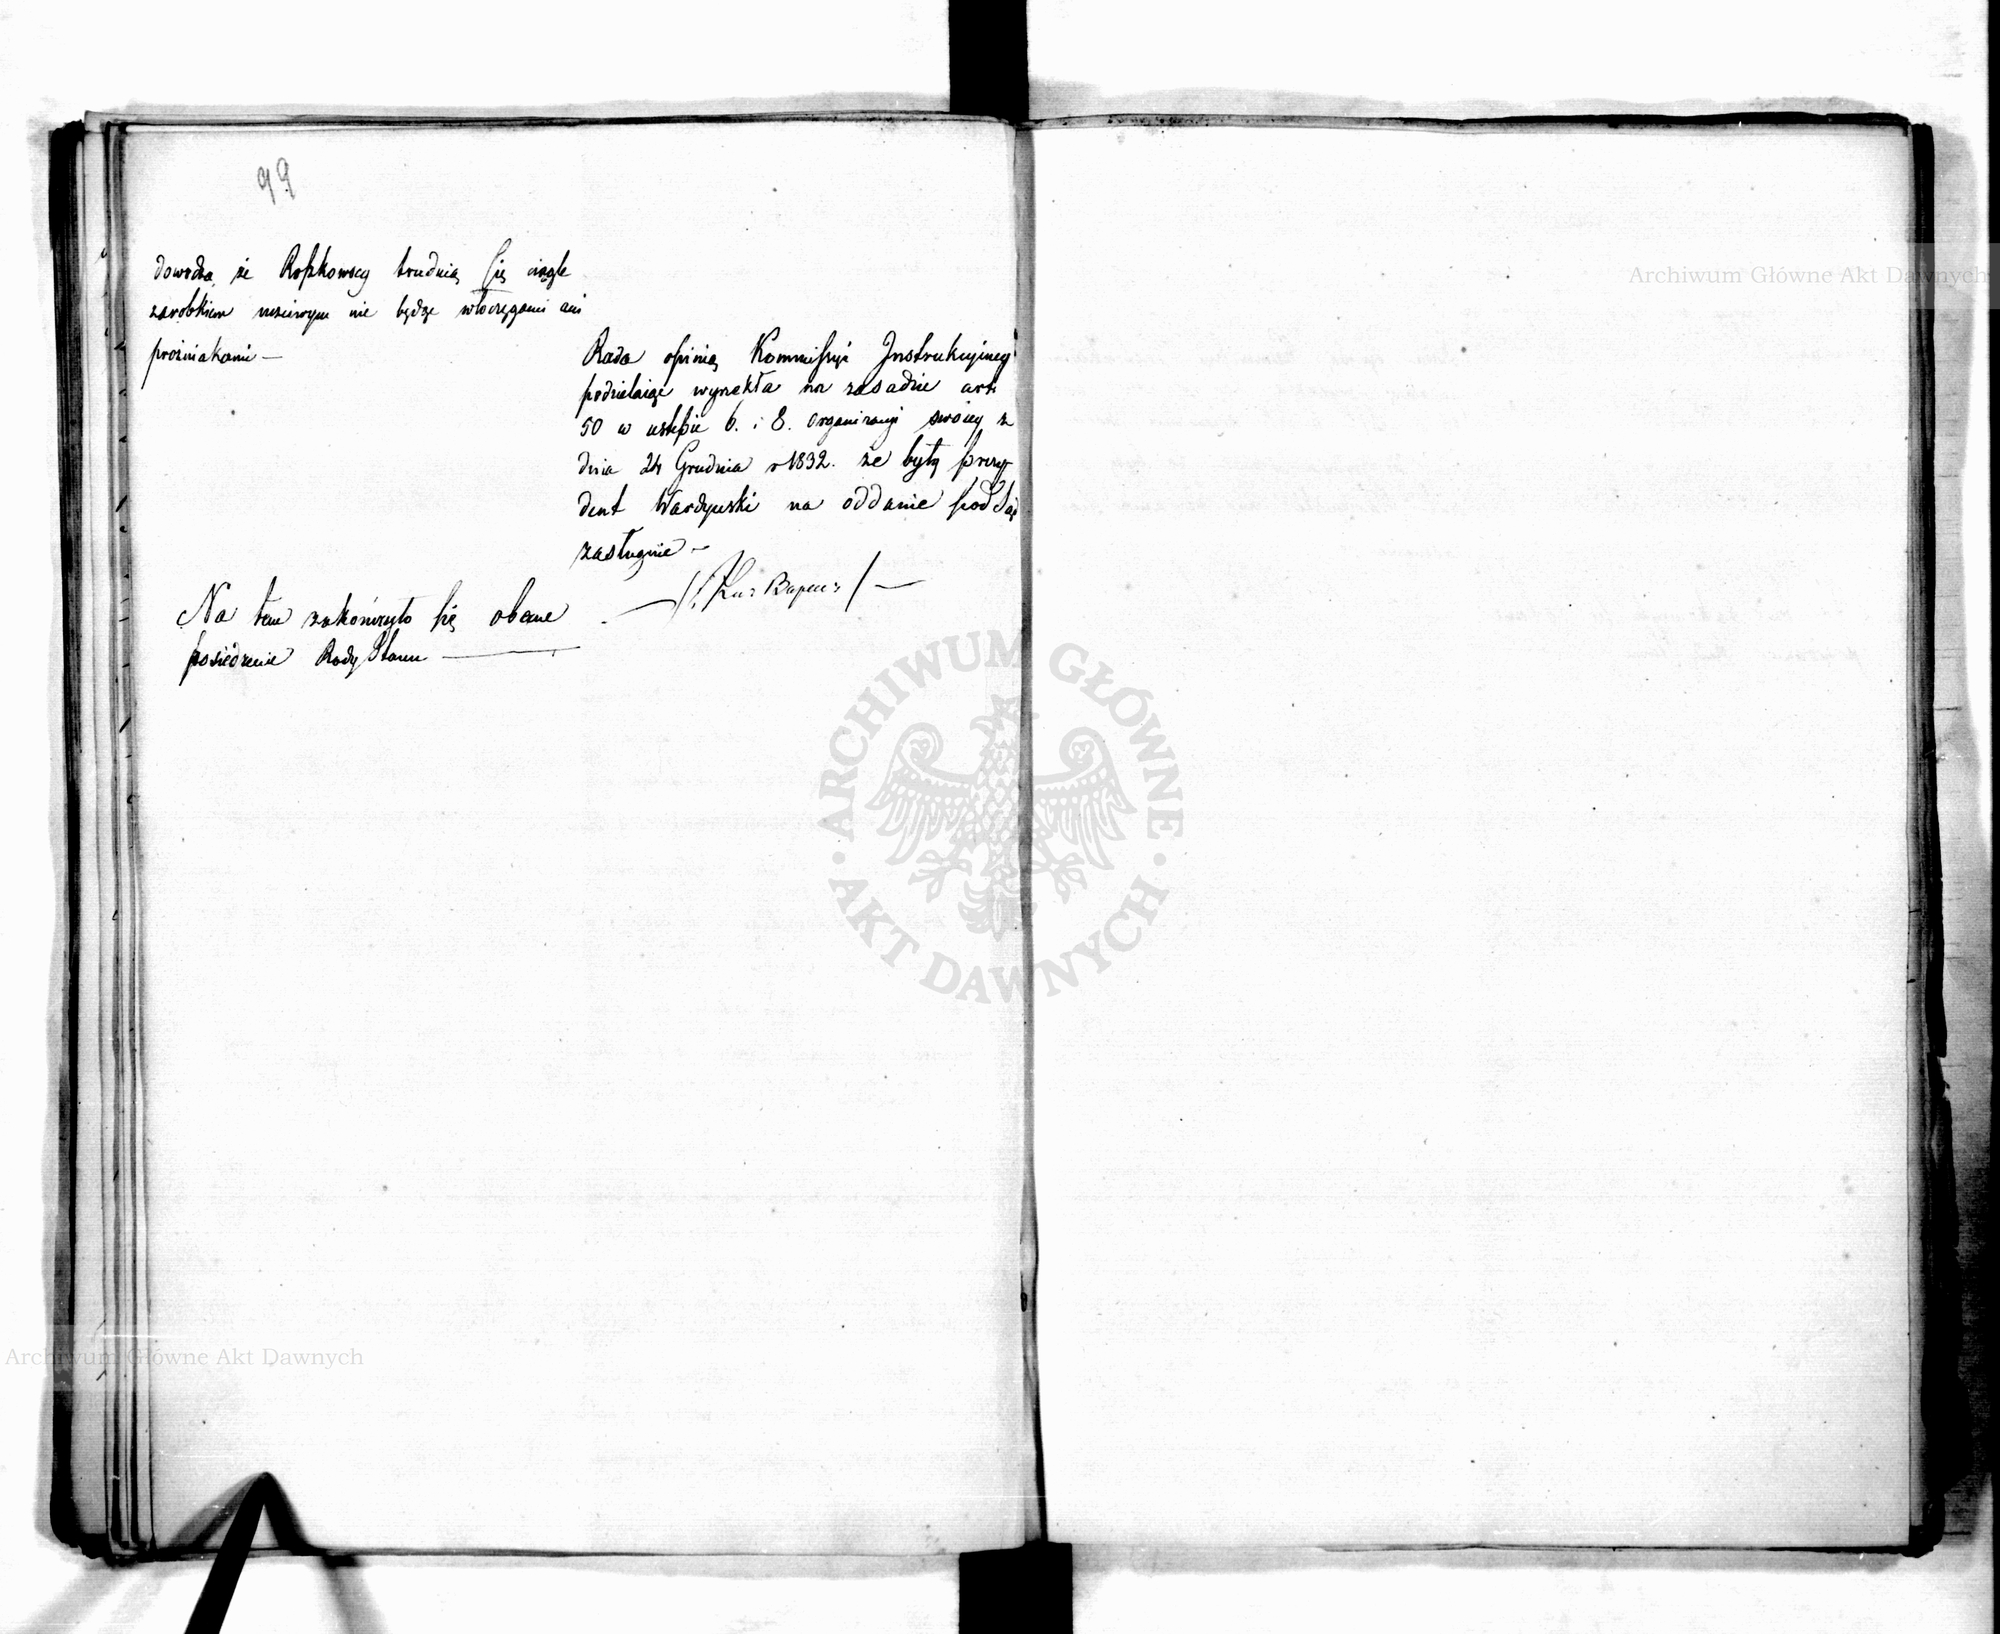 99
dowodzą, że Roszkowscy trudnią się ciągle
zarobkiem uczciwym nie będąc włoczęgami ani
prożniakami —
Rada opinią Kommissyi Instrukcyiney
podzielaiąc wyrzekła na zasadzie art:
50 w ustępie 6. i 8. organizacyi swoiey z
dnia 24 Grudnia r 1832. że były prezy-
dent na oddanie pod Sąd
zasługuie —
Na tem zakończyło się obecne
posiedzenie Rady Stanu
Archiwum Główne Akt Dawnych
ARCHIWUM GŁÓWNE AKT DAWNYCH
Archiwum Główne Akt Dawnych